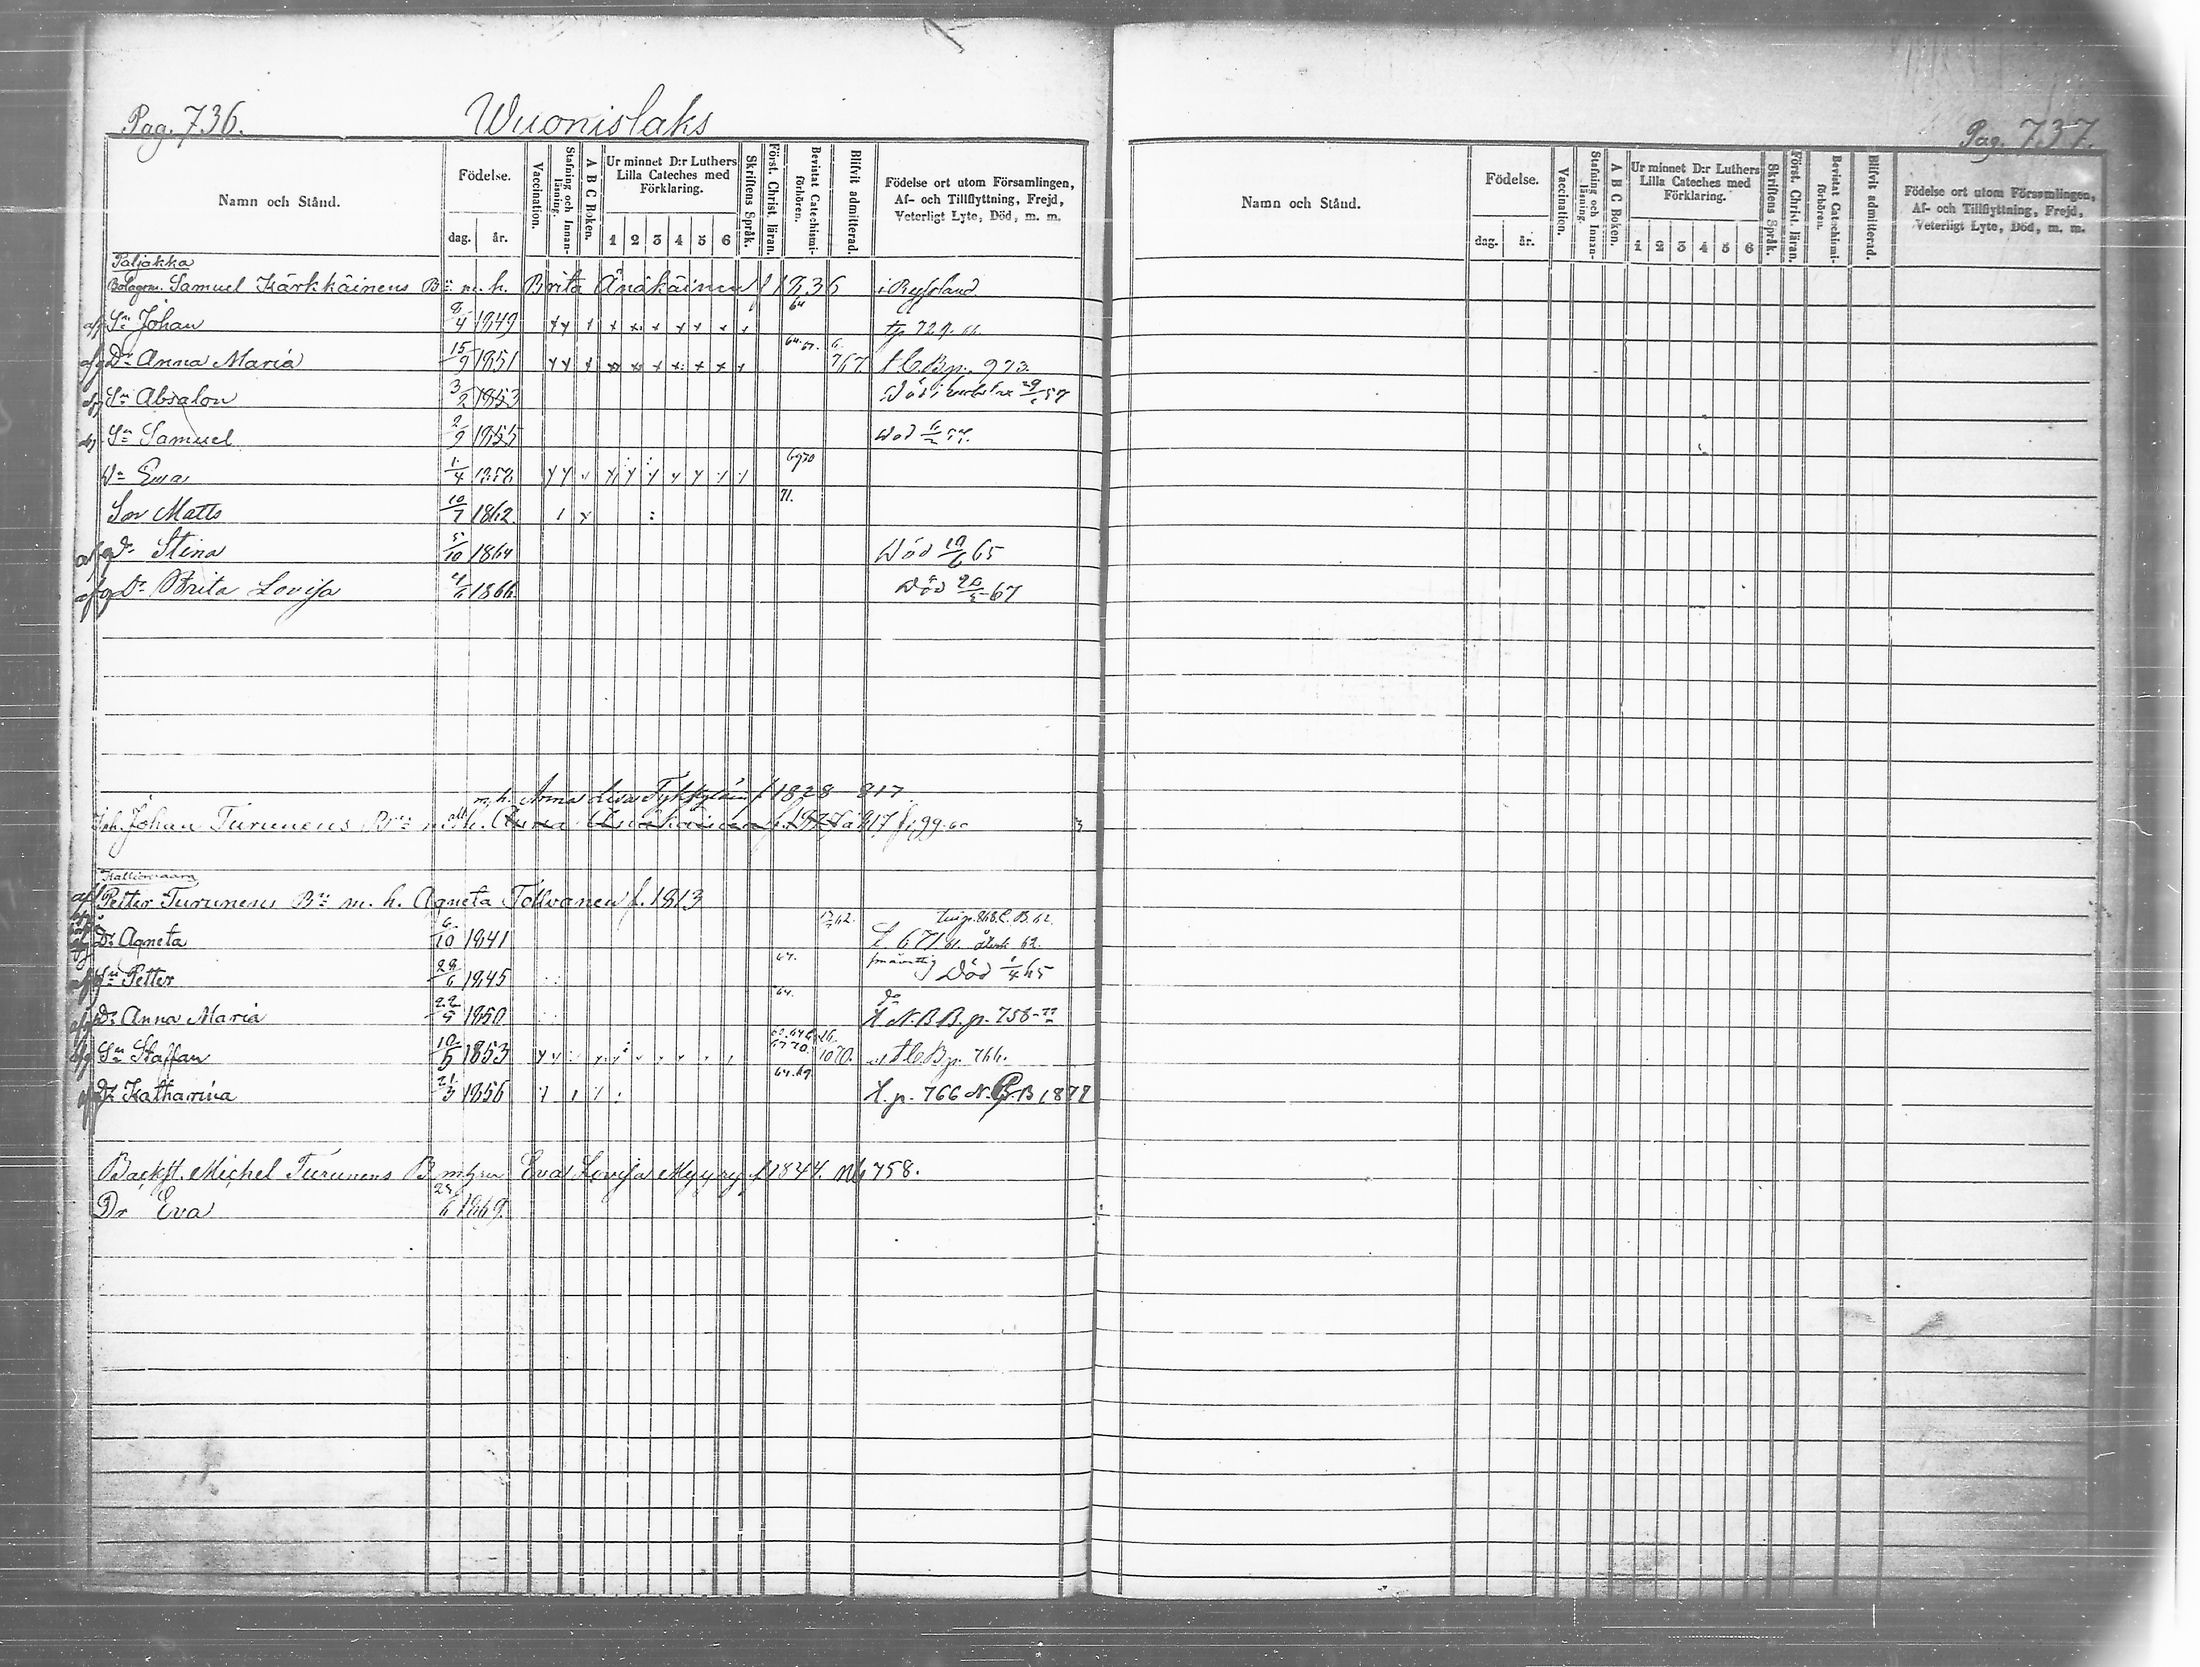 Pag. 736. Wuonislaks
Namn och Stånd. Födelse. dag. år. Vaccination. Stafning och Innanläsning. A B C Boken. Ur minnet D:r Luthers Lilla Cateches med Förklaring. 1 2 3 4 5 6 Skriftens Språk. Först. Christ. läran. Bevistat Catechismiförhören. Blifvit admitterad. Födelse ort utom Församlingen, Af- och Tillflyttning, Frejd, Veterligt Lyte, Död, m. m.
Paljakka
Bolagsm. Samuel Kärkkäinens Bn m. h. Brita Änäkäinen f 1836 i Ryssland
afg Sn Johan 8/4 1849 64 tp. 729. 66
afg Dr Anna Maria 15/9 1851 64. 67. 6/7 67
afg Sn Absalon 3/2 1853
afg Sn Samuel 2/9 1855 Död
Dr Eva 1/4 1858 69 70
Son Matts 10/7 1862. 71.
afg Dr Stina 5/10 1864 Död 19/6 65
afg Dr Brita Lovisa 4/6 1866 Död 67
m. h. Anna Lisa f 1828 817
Inh. Johan Turunens Bn m. h. Anna
Kalliovaara
afl Petter Turunens Bn m. h. Agneta Tolvanen f. 1813
Dr Agneta 6/10 1841 62. t. 671 61 återk 62.
afg Sn Petter 28/6 1845 64. Död 1/4 65
afg Dr Anna Maria 22/5 1850 64. t. N.B B. p. 758
afg Sn Staffan 10/5 1853 10 70. p. 766.
afg Dr Katharina 21/3 1856 64. 69 t. p. 766 N.B.B 187
Backst. Michel Turunens B m hru Eva Lovisa Myyry f 1844. 758.
Dr Eva 1869.
Pag. 737.
Namn och Stånd. Födelse. dag. år. Vaccination. Stafning och Innanläsning. A B C Boken. Ur minnet D:r Luthers Lilla Cateches med Förklaring. 1 2 3 4 5 6 Skriftens Språk. Först. Christ. läran. Bevistat Catechismiförhören. Blifvit admitterad. Födelse ort utom Församlingen, Af- och Tillflyttning, Frejd, Veterligt Lyte, Död, m. m.